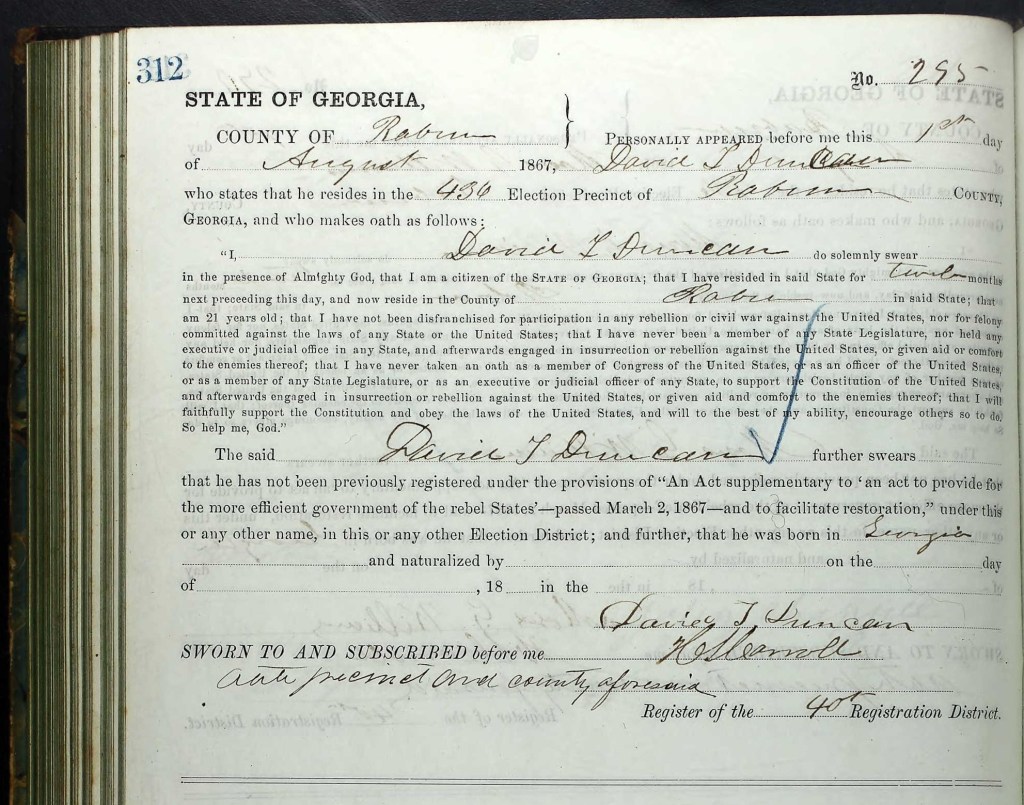 312
No. 295
STATE OF GEORGIA,
COUNTY OF Rabun } PERSONALLY APPEARED before me this 1st day
of August 1867, David T Duncan
who states that he resides in the 436 Election Precinct of Rabun COUNTY,
GEORGIA, and who makes oath as follows:
"I, David T Duncan do solemnly swear
in the presence of Almighty God, that I am a citizen of the STATE OF GEORGIA; that I have resided in said State for twelve months
next preceeding this day, and now reside in the County of Rabun in said State; that
am 21 years old; that I have not been disfranchised for participation in any rebellion or civil war against the United States, nor for felony
committed against the laws of any State or the United States; that I have never been a member of any State Legislature, nor held any
executive or judicial office in any State, and afterwards engaged in insurrection or rebellion against the United States, or given aid or comfort
to the enemies thereof; that I have never taken an oath as a member of Congress of the United States, or as an officer of the United States,
or as a member of any State Legislature, or as an executive or judicial officer of any State, to support the Constitution of the United States,
and afterwards engaged in insurrection or rebellion against the United States, or given aid and comfort to the enemies thereof; that I will
faithfully support the Constitution and obey the laws of the United States, and will to the best of my ability, encourage others so to do.
So help me, God."
The said David T Duncan further swears
that he has not been previously registered under the provisions of "An Act supplementary to 'an act to provide for
the more efficient government of the rebel States'—passed March 2, 1867—and to facilitate restoration," under this
or any other name, in this or any other Election District; and further, that he was born in Georgia
and naturalized by on the day
of , 18 in the
David T. Duncan
SWORN TO AND SUBSCRIBED before me
at precinct and county aforesaid
Register of the 40th Registration District.